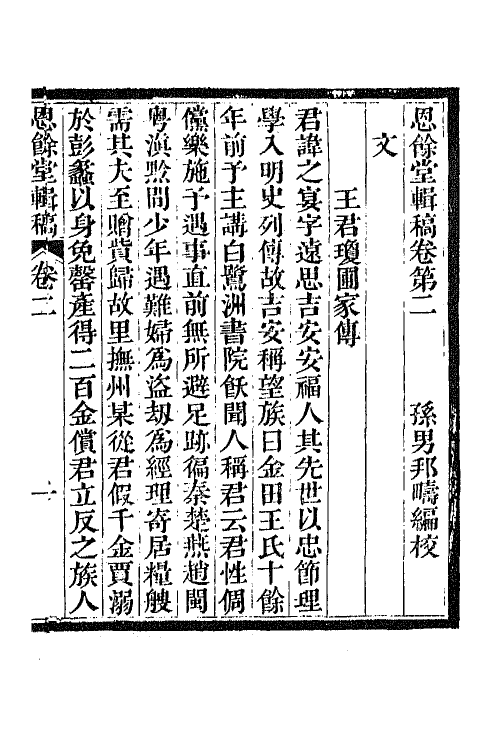 恩餘堂輯稿卷第二　孫男邦疇編校
文
王君瓊圃家傳
君諱之宴字遠思吉安安福人其先世以忠節理
學入明史列傳故吉安稱望族曰金田王氏十餘
年前予主講白鷺洲書院飫聞人稱君云君性倜
儻樂施予遇事直前無所避足跡徧秦楚燕趙閩
粵滇黔間少年遇難婦為盜刼為經理寄居糧艘
需其夫至贈貲歸故里撫州某從君假千金賈溺
於彭蠡以身免罄產得二百金償君立反之族人
恩餘堂輯稿　卷二　一